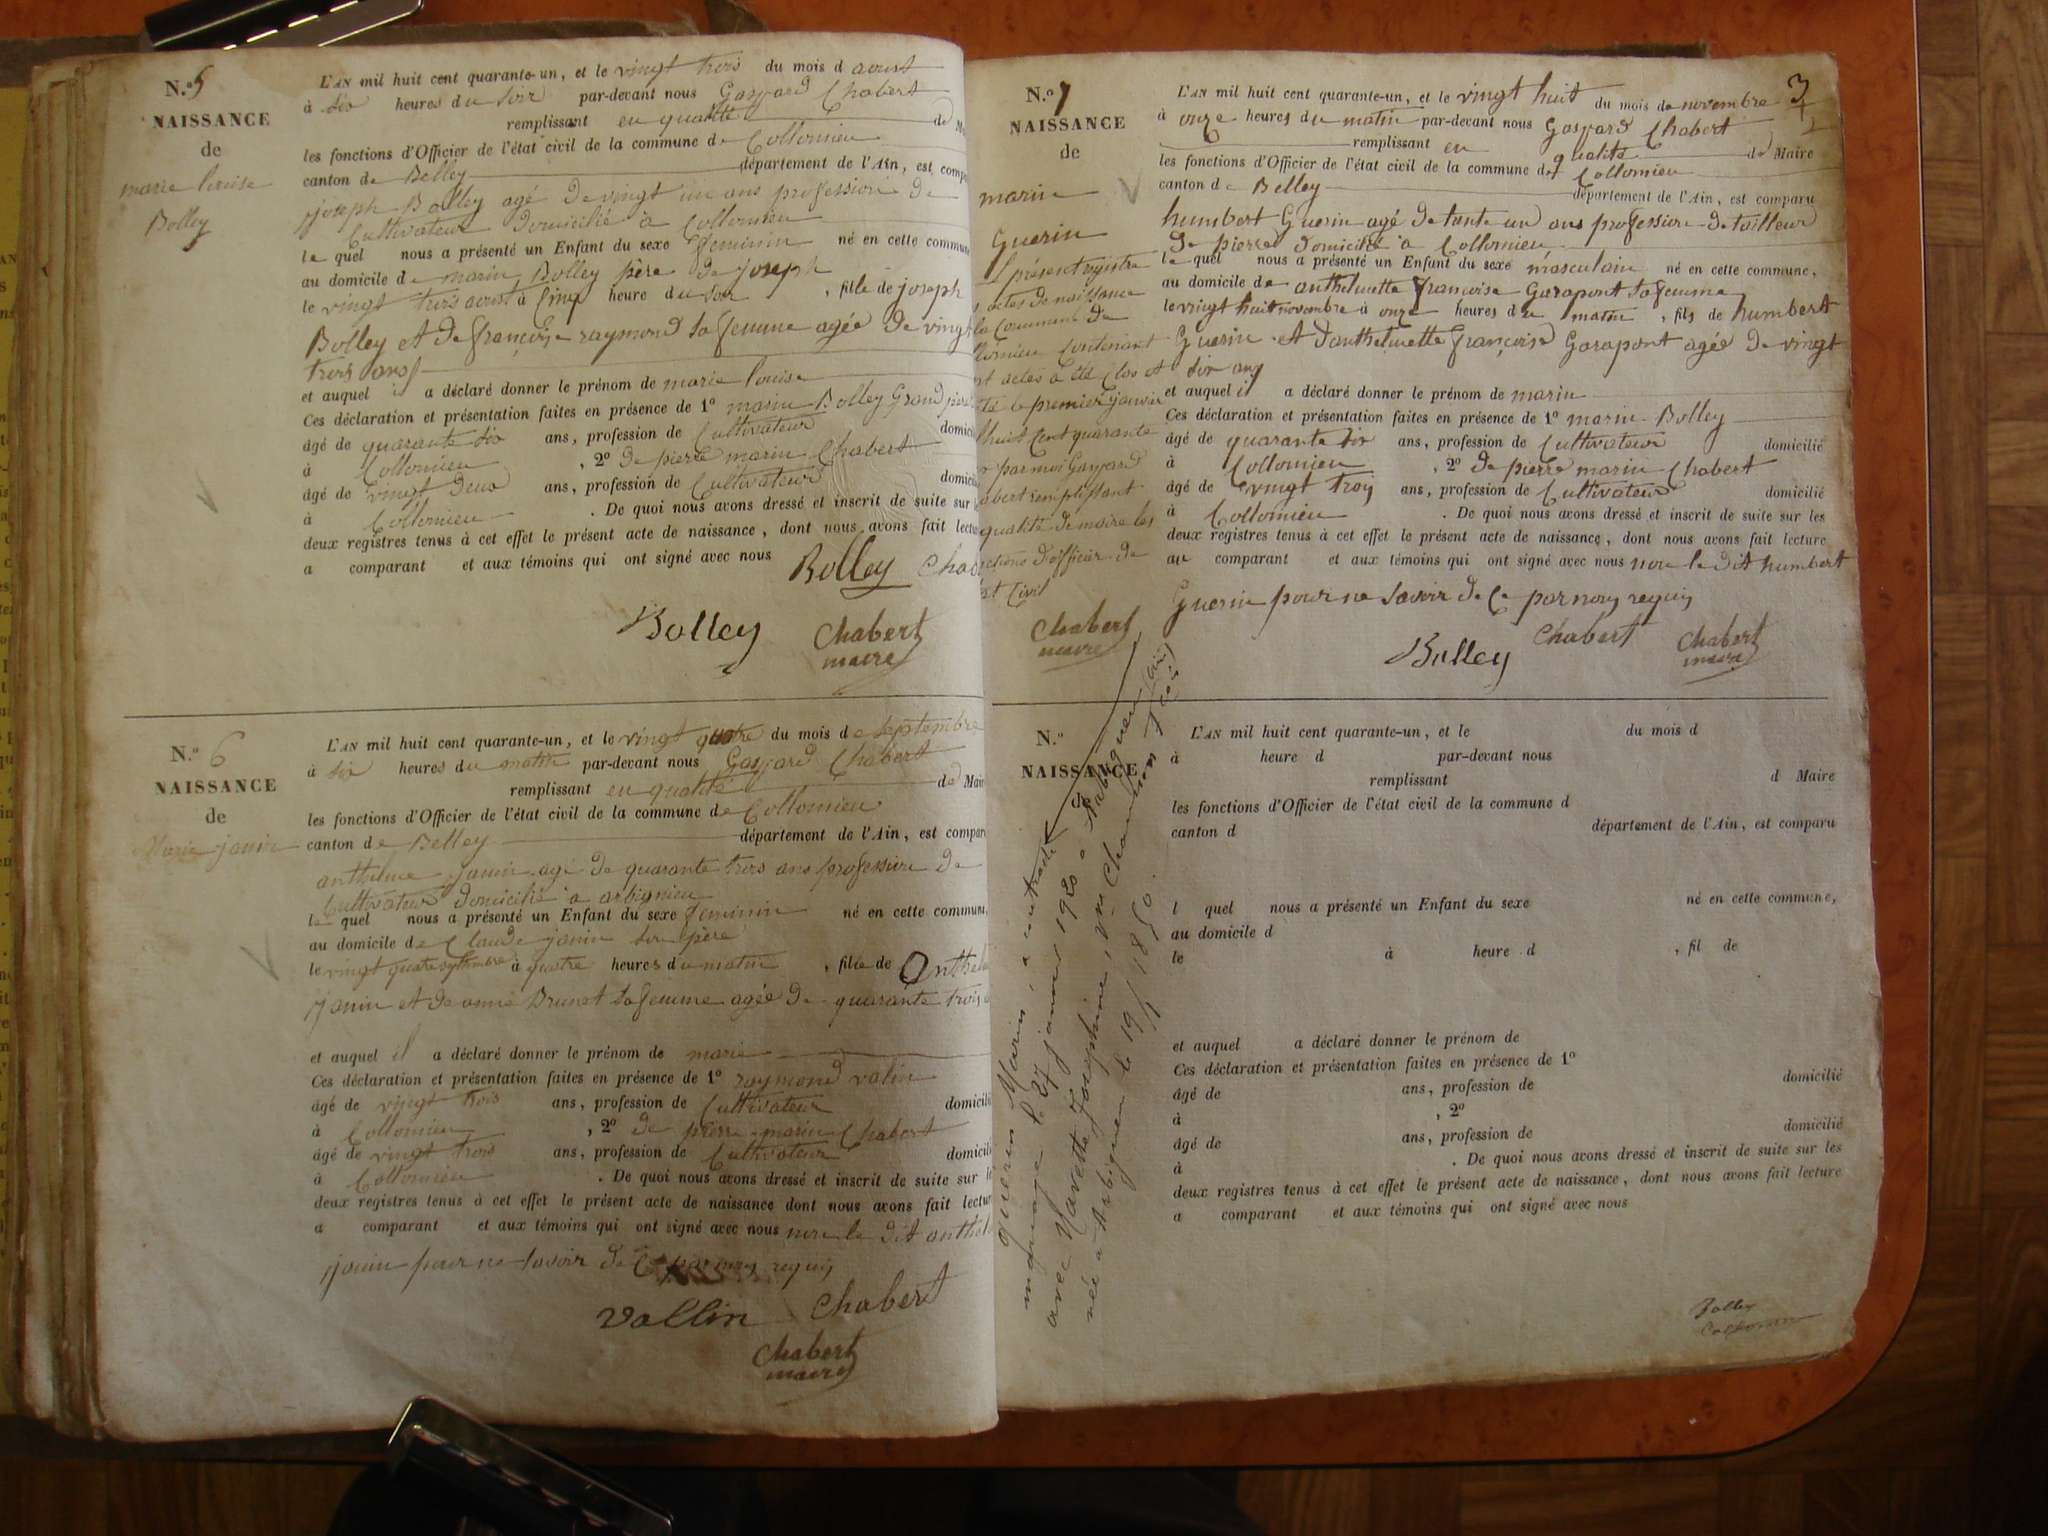 N.o 5
NAISSANCE
de
marie louise
Bolley
L'AN mil huit cent quarante-un, et le vingt trois du mois d aoust
à six heures du soir par-devant nous Gaspard Chabert
remplissant en qualité de M
les fonctions d'Officier de l'état civil de la commune de Collomieu
canton de Belley département de l'Ain, est compa
joseph Bolley agé de vingt un ans profession de
Cultivateur domicilié à Collomieu
le quel nous a présenté un Enfant du sexe feminin né en cette commune
au domicile de marin Bolley père de joseph
le vingt trois aoust à cinq heure du soir, fille de joseph
Bolley et de françoise raymond sa femme agée de vingt
trois ans
et auquel il a déclaré donner le prénom de marie louise
Ces déclaration et présentation faites en présence de 1o marin Bolley Grand père
âgé de quarante six ans, profession de Cultivateur domicil
à Collomieu, 2o de pierre marin Chabert
âgé de vingt deux ans, profession de Cultivateur domicil
à Collomieu. De quoi nous avons dressé et inscrit de suite sur l
deux registres tenus à cet effet le présent acte de naissance, dont nous avons fait lectu
a comparant et aux témoins qui ont signé avec nous
Bolley Chab
Bolley Chabert
maire
N.o 6
NAISSANCE
de
Marie janin
L'AN mil huit cent quarante-un, et le vingt quatre du mois de septembre
à six heures du matin par-devant nous Gaspard Chabert
remplissant en qualité de Mair
les fonctions d'Officier de l'état civil de la commune de Collomieu
canton de Belley département de l'Ain, est compar
anthelme janin agé de quarante trois ans profession de
Cultivateur domicilié à arbignieu
le quel nous a présenté un Enfant du sexe feminin né en cette commune,
au domicile de Claude janin son père
le vingt quatre septembre à quatre heures du matin, fille de Anthel
janin et de annie Brunet sa femme agée de quarante trois
et auquel il a déclaré donner le prénom de marie
Ces déclaration et présentation faites en présence de 1o raymond valin
âgé de vingt trois ans, profession de Cultivateur domicili
à Collomieu, 2o de pierre marin Chabert
âgé de vingt trois ans, profession de Cultivateur domicili
à Collomieu. De quoi nous avons dressé et inscrit de suite sur l
deux registres tenus à cet effet le présent acte de naissance dont nous avons fait lectur
a comparant et aux témoins qui ont signé avec nous non le dit anthel
janin pour ne savoir de ce par nous requis
Vallin Chabert
Chabert
maire
3
N.o 7
NAISSANCE
de
marin
Guerin
l présent registre
s actes de naissance
la Commune de
lomieu Contenant
pt actes a été Clos et
té le premier janvier
l huit Cent quarante
par moi Gaspard
abert remplissant
qualité de maire les
ctions d'officier de
at Civil
Chabert
maire
L'AN mil huit cent quarante-un, et le vingt huit du mois de novembre
à onze heures du matin par-devant nous Gaspard Chabert
remplissant en qualité de Maire
les fonctions d'Officier de l'état civil de la commune de Collomieu
canton de Belley département de l'Ain, est comparu
humbert Guerin agé de tante un ans profession de tailleur
de pierre domicilié à Collomieu
le quel nous a présenté un Enfant du sexe masculain né en cette commune,
au domicile de anthelmette françoise Garapont sa femme
le vingt huit novembre à onze heures du matin, fils de humbert
Guerin et d'anthelmette françoise Garapont agée de vingt
six ans
et auquel il a déclaré donner le prénom de marin
Ces déclaration et présentation faites en présence de 1o marin Bolley
âgé de quarante six ans, profession de Cultivateur domicilié
à Collomieu, 2o de pierre marin Chabert
âgé de vingt trois ans, profession de Cultivateur domicilié
à Collomieu. De quoi nous avons dressé et inscrit de suite sur les
deux registres tenus à cet effet le présent acte de naissance, dont nous avons fait lecture
au comparant et aux témoins qui ont signé avec nous non le dit humbert
Guerin pour ne savoir de ce par nous requis
Bolley Chabert Chabert
maire
N.o
NAISSANCE
de
Guerin Marin a contracté
mariage le 27 janvier 1920 a
avec Navette Joséphine, Vve
née a Arbignieu le 19/1/1850.
L'AN mil huit cent quarante-un, et le du mois d
à heure d par-devant nous
remplissant d Maire
les fonctions d'Officier de l'état civil de la commune d
canton d département de l'Ain, est comparu
l quel nous a présenté un Enfant du sexe né en cette commune,
au domicile d
le à heure d, fil de
et auquel a déclaré donner le prénom de
Ces déclaration et présentation faites en présence de 1o
âgé de ans, profession de domicilié
à, 2o
âgé de ans, profession de domicilié
à. De quoi nous avons dressé et inscrit de suite sur les
deux registres tenus à cet effet le présent acte de naissance, dont nous avons fait lecture
a comparant et aux témoins qui ont signé avec nous